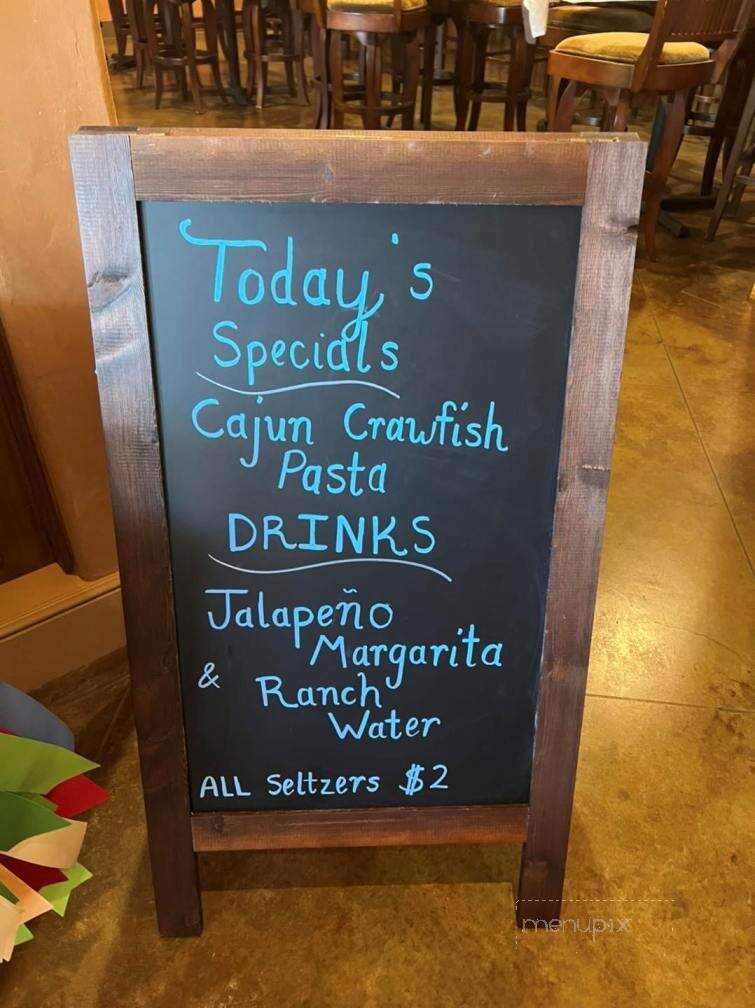 Today's
Specials
Cajun Crawfish
Pasta
DRINKS
Jalapeño
Margarita
& Ranch
Water
ALL Seltzers $2
menupix